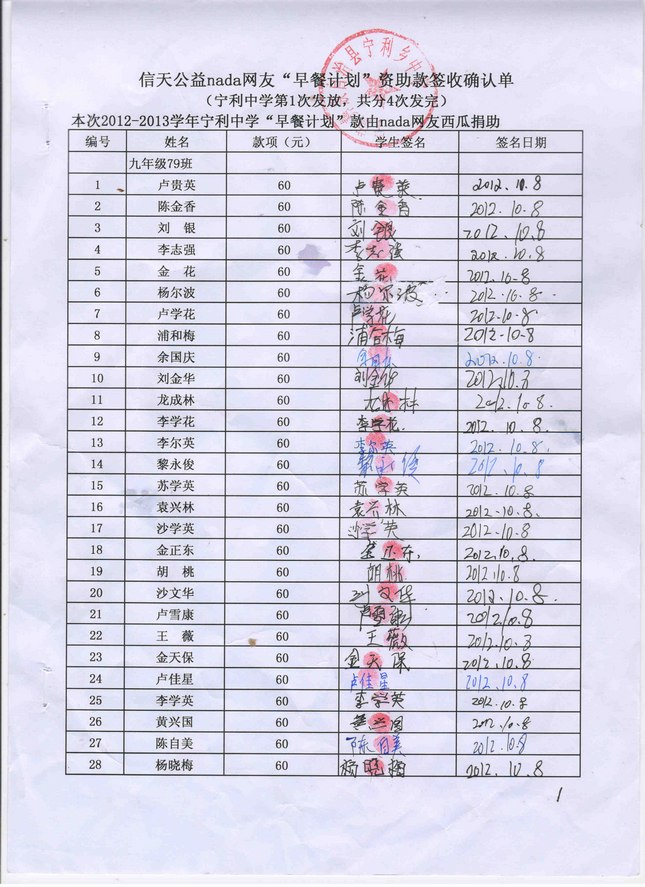 信天公益nada网友“早餐计划”资助款签收确认单
（宁利中学第1次发放，共分4次发完）
本次2012-2013学年宁利中学“早餐计划”款由nada网友西瓜捐助
编号 姓名 款项（元） 学生签名 签名日期
九年级79班
1 卢贵英 60 卢贵英 2012.10.8
2 陈金香 60 陈金香 2012.10.8
3 刘 银 60 刘银 2012.10.8
4 李志强 60 李志强 2012.10.8
5 金 花 60 金花 2012.10.8
6 杨尔波 60 杨尔波 2012.10.8
7 卢学花 60 卢学花 2012.10.8
8 浦和梅 60 浦合梅 2012-10-8
9 余国庆 60 2012.10.8
10 刘金华 60 刘金华 2012.10.8
11 龙成林 60 2012.10.8.
12 李学花 60 李学花 2012.10.8
13 李尔英 60 李尔英 2012.10.8
14 黎永俊 60
15 苏学英 60 苏学英 2012.10.8
16 袁兴林 60 袁兴林 2012.10.8.
17 沙学英 60 沙学英 2012-10-8
18 金正东 60 金正东 2012.10.8.
19 胡 桃 60 胡桃 2012.10.8
20 沙文华 60 2012.10.8.
21 卢雪康 60 2012.10.8
22 王 薇 60 王薇
23 金天保 60 金天保 2012.10.8
24 卢佳星 60 卢佳星 2012.10.8
25 李学英 60 李学英 2012.10.8
26 黄兴国 60 黄兴国 2012.10.8
27 陈自美 60 陈自美 2012.10.8
28 杨晓梅 60 杨晓梅 2012.10.8
1